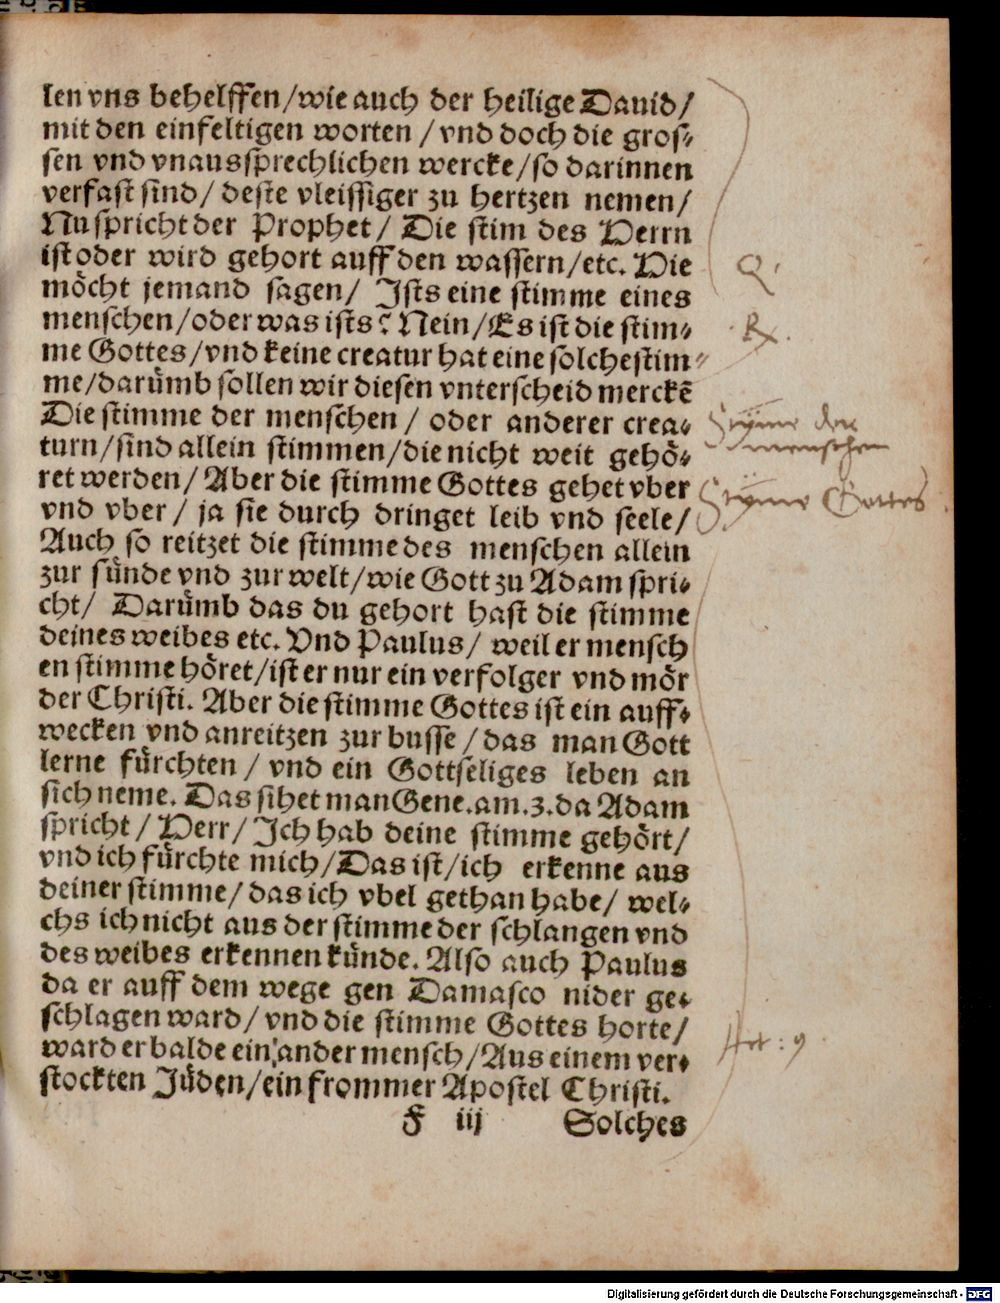 len vns behelffen/wie auch der heilige Dauid/
mit den einfeltigen worten / vnd doch die gros-
sen vnd vnaussprechlichen wercke/so darinnen
verfast sind/ deste vleissiger zu hertzen nemen/
Nu spricht der Prophet/ Die stim des Herrn
ist oder wird gehort auff den wassern/etc. Hie
möcht jemand sagen/ Ists eine stimme eines
menschen/oder was ists? Nein/Es ist die stim-
me Gottes/vnd keine creatur hat eine solche stim-
me/darümb sollen wir diesen vnterscheid merckẽ
Die stimme der menschen / oder anderer crea-
turn/sind allein stimmen/die nicht weit gehö-
ret werden/ Aber die stimme Gottes gehet vber
vnd vber / ja sie durch dringet leib vnd seele/
Auch so reitzet die stimme des menschen allein
zur sünde vnd zur welt/wie Gott zu Adam spri-
cht/ Darümb das du gehort hast die stimme
deines weibes etc. Vnd Paulus/ weil er mensch
en stimme höret/ist er nur ein verfolger vnd mör
der Christi. Aber die stimme Gottes ist ein auff-
wecken vnd anreitzen zur busse / das man Gott
lerne fürchten / vnd ein Gottseliges leben an
sich neme. Das sihet man Gene.am.3.da Adam
spricht/ Herr/ Ich hab deine stimme gehört/
vnd ich fürchte mich/Das ist/ich erkenne aus
deiner stimme/ das ich vbel gethan habe/ wel-
chs ich nicht aus der stimme der schlangen vnd
des weibes erkennen künde. Also auch Paulus
da er auff dem wege gen Damasco nider ge-
schlagen ward/ vnd die stimme Gottes horte/
ward er balde ein ander mensch/Aus einem ver-
stockten Jüden/ein frommer Apostel Christi.
F iij Solches
Q.
R.
Stÿme der
menschen
Stÿme Gottes
Act: 9
Digitalisierung gefördert durch die Deutsche Forschungsgemeinschaft - DFG